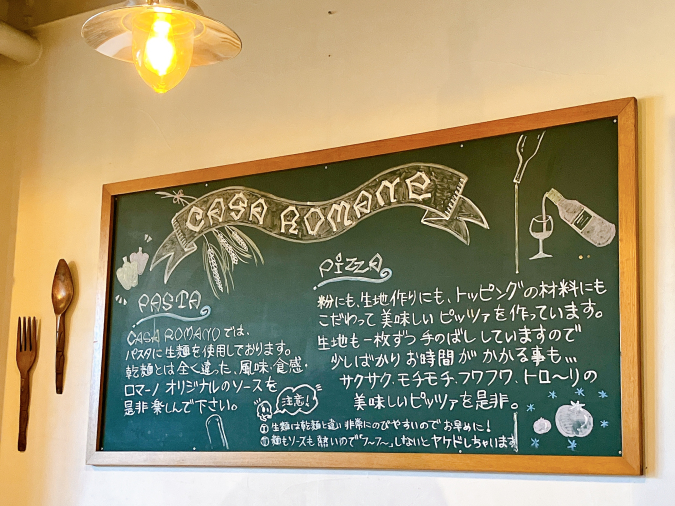 CASA ROMANO
PASTA
CASA ROMANO では、
パスタに生麺を使用しております。
乾麺とは全く違った、風味・食感・
ロマーノ オリジナルのソースを
是非楽しんで下さい。
PIZZA
粉にも、生地作りにも、トッピングの材料にも
こだわって美味しいピッツァを作っています。
生地も一枚ずつ手のばししていますので
少しばかりお時間がかかる事も…
サクサク、モチモチ、フワフワ、トロ〜リの
美味しいピッツァを是非。
注意!
① 生麺は乾麺と違い非常にのびやすいのでお早めに!
② 麺もソースも熱いので"フ〜フ〜"しないとヤケドしちゃいます